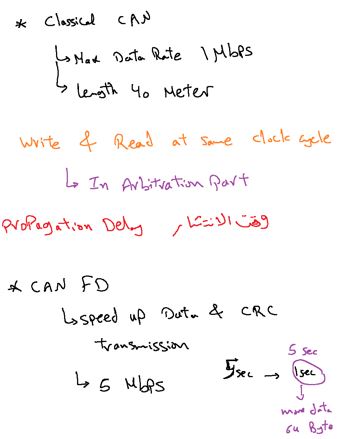 * Classical CAN
↳ Max Data Rate 1 Mbps
↳ Length 40 Meter
Write & Read at same clock cycle
↳ In Arbitration Part
Propagation Delay وقت الانتشار
* CAN FD
↳ speed up Data & CRC
transmission
↳ 5 Mbps
5 sec
5 sec → 1 sec
↓
more data
64 Byte